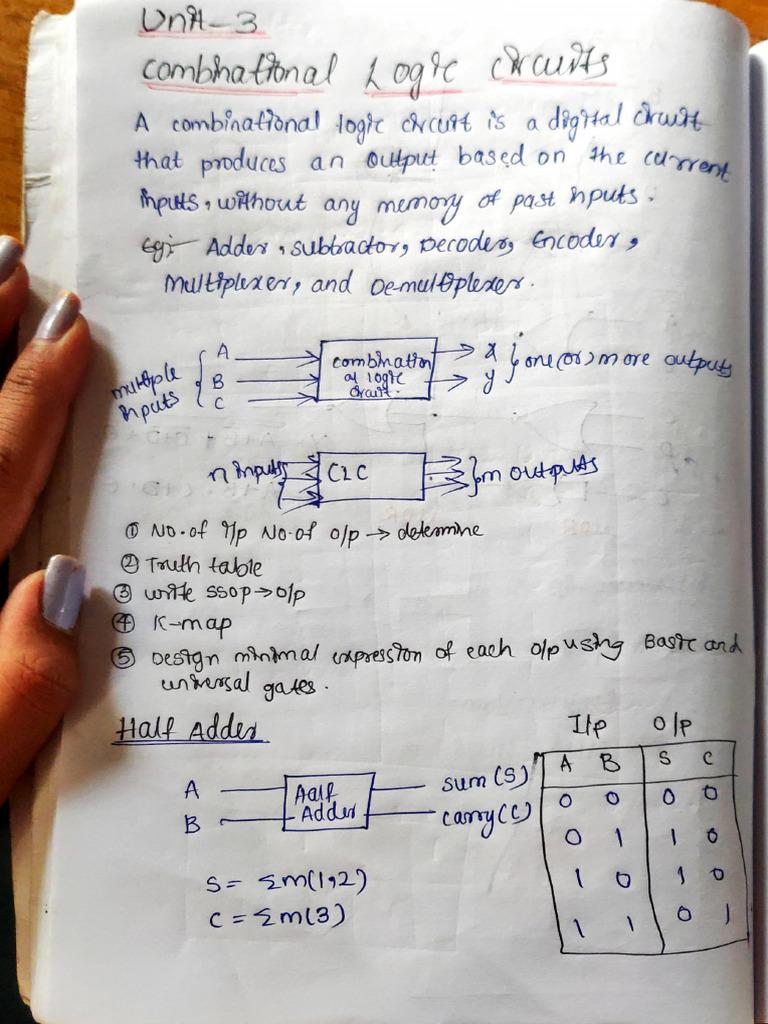 Unit-3
Combinational Logic circuits
A combinational logic circuit is a digital circuit
that produces an output based on the current
inputs, without any memory of past inputs.
Eg:- Adder, subtractor, Decoder, Encoder,
Multiplexer, and De-multiplexer.
multiple inputs { A B C
combination al logic circuit.
x y } one (or) more outputs
n inputs CLC } m outputs
① No. of I/p No. of o/p → determine
② Truth table
③ write SSOP → o/p
④ K-map
⑤ Design minimal expression of each o/p using Basic and
universal gates.
Half Adder
I/p O/p
A B S C
0 0 0 0
0 1 1 0
1 0 1 0
1 1 0 1
A
B
Half Adder
sum(S)
carry(C)
S = Σm(1,2)
C = Σm(3)